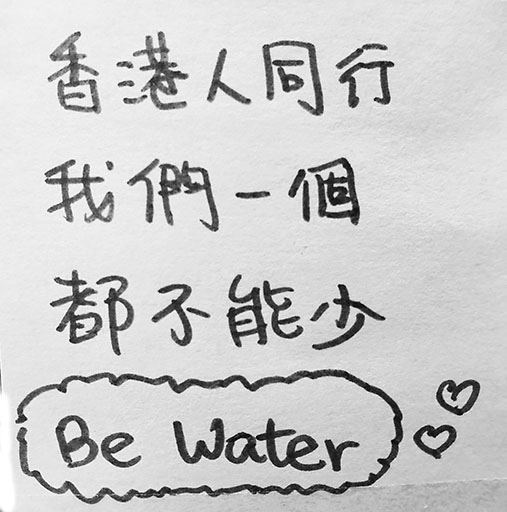 香港人同行
我們一個
都不能少
Be Water